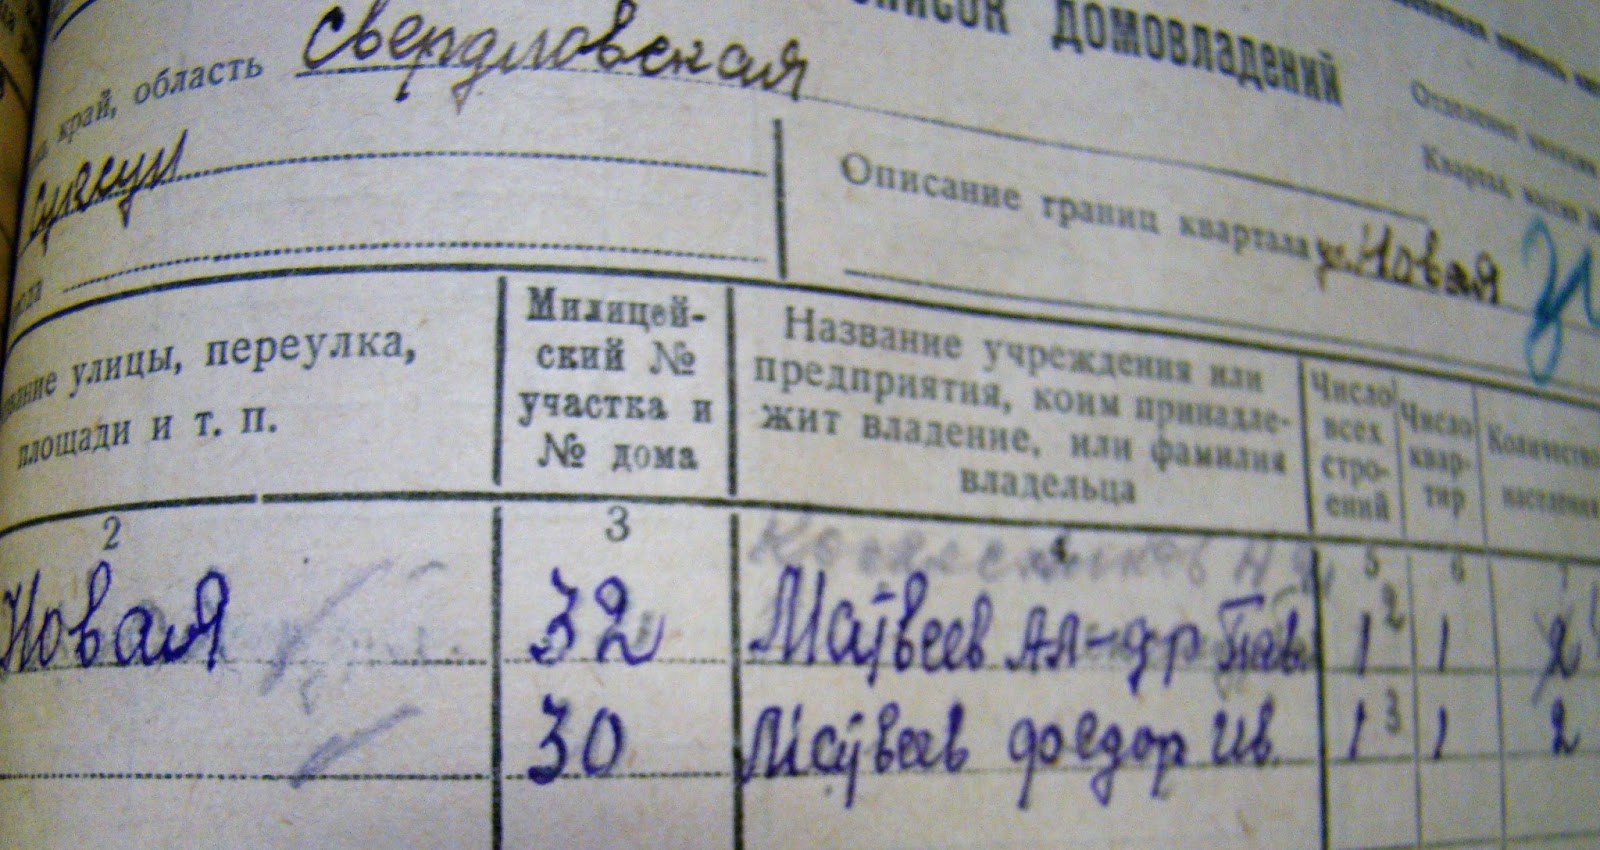 список домовладений
край, область Свердловская
Отделение
Сулякул
Квартал
Описание границ квартала ул. Новая
улицы, переулка,
площади и т. п.
Милицей-
ский №
участка и
№ дома
Название учреждения или
предприятия, коим принадле-
жит владение, или фамилия
владельца
Число
всех
стро-
ений
Число
квар-
тир
Количество
населения
2 3 4 5 6 7
Новая 32 Матвеев Ал-др Пав. 1 2 1 2
30 Матвеев Федор Ив. 1 3 1 2